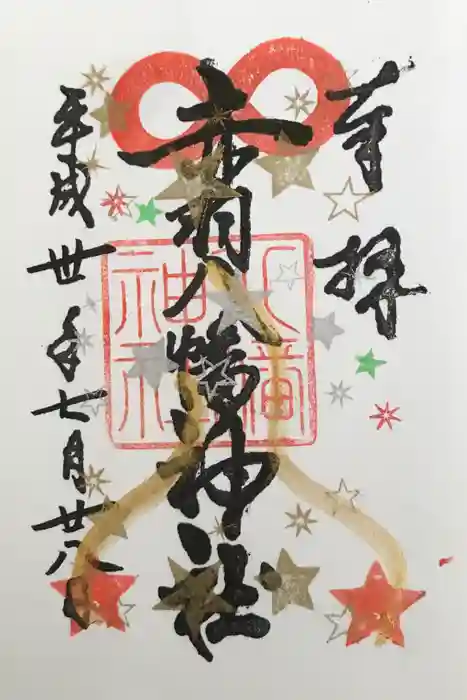 奉拝
赤羽八幡神社
平成丗年七月廿八日
八幡
神社